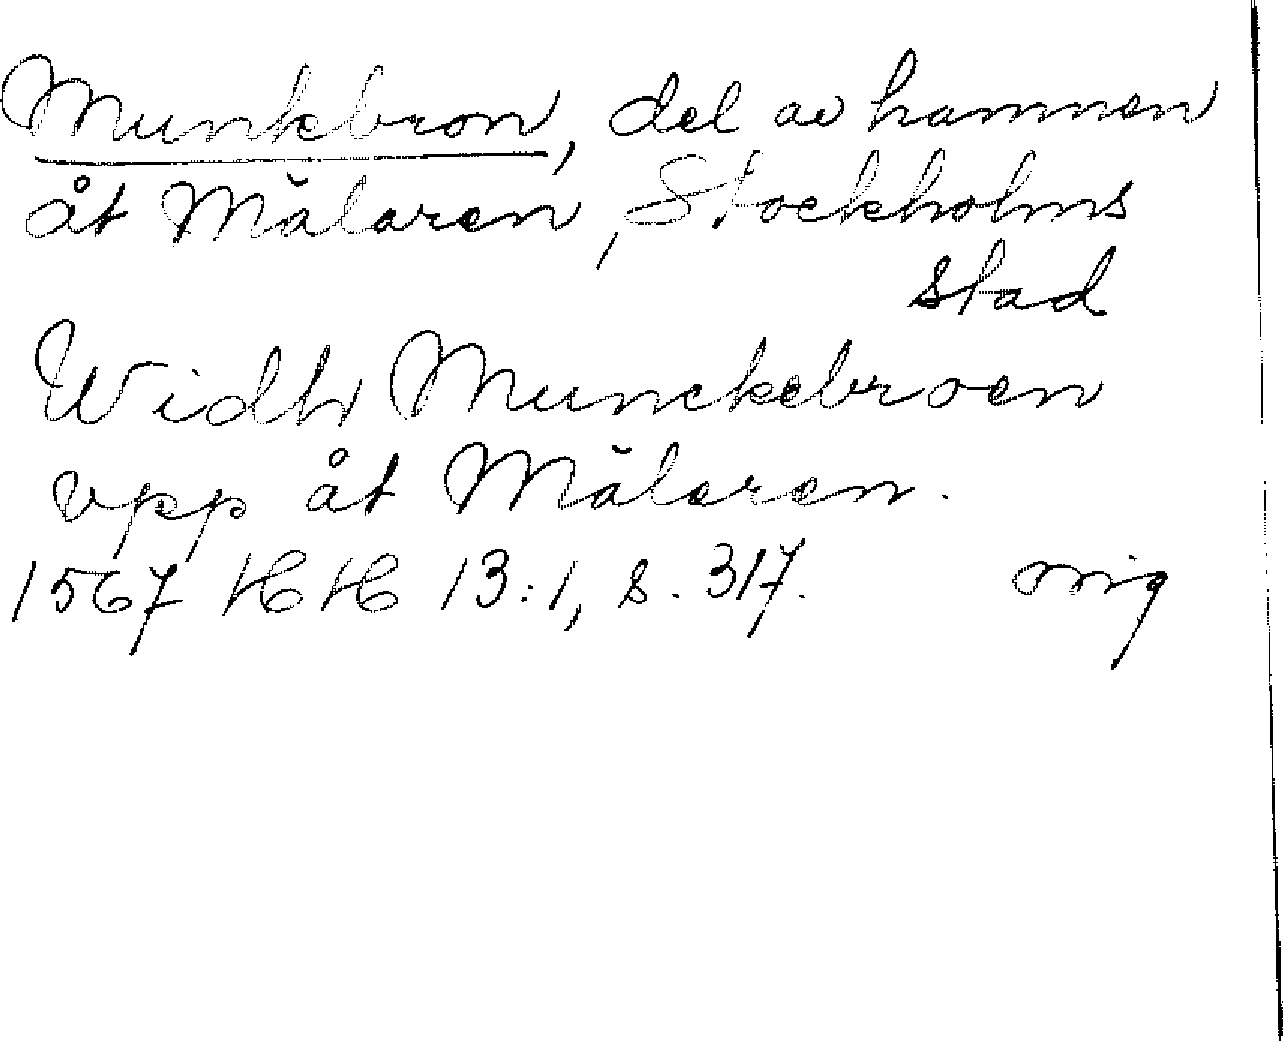 Munkbron, del av hamnen
åt Mälaren, Stockholms
stad
Widh Munckebroen
vpp åt Mälaren.
1567 HH 13:1, s. 317.